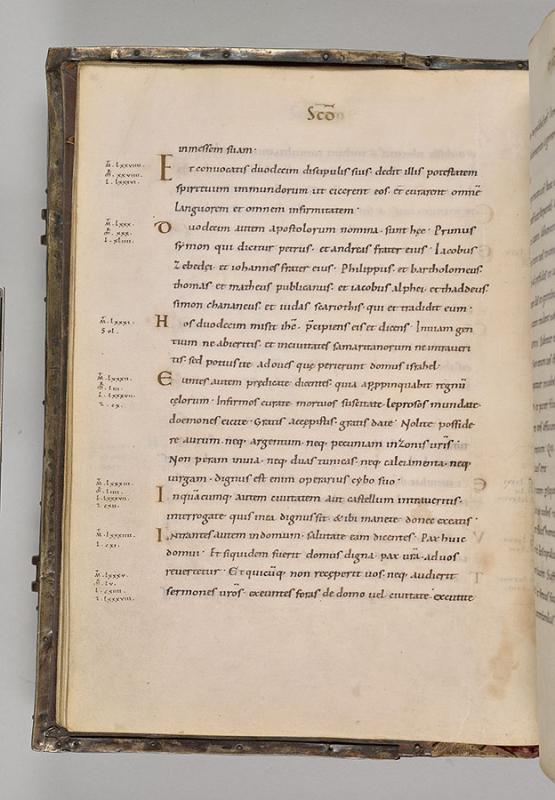 Scdo
in messem suam.
Et convocatis duodecim discipulis suis. dedit illis potestatem
spirituum immundorum ut eicerent eos. et curarent omnē
languorem et omnem infirmitatem.
Duodecim autem apostolorum nomina. sunt hęc. Primus
symon qui dicitur petrus. et andreas frater eius. Iacobus
Zebedei. et iohannes frater eius. Philippus. et bartholomeus.
thomas et matheus publicanus. et iacobus alphei. et thaddeus.
simon chananeus. et iudas scariothis qui et tradidit eum.
Hos duodecim misit ihs. pcipiens eis et dicens. In viam gen
tium ne abieritis. et in civitates samaritanorum ne intraveri
tis. sed potius ite ad oves quę perierunt domus israhel.
Euntes autem predicate dicentes. quia appinquabit regnū
cęlorum. Infirmos curate mortuos suscitate leprosos mundate.
doemones eicite. Gratis accepistis. gratis date. Nolite posside
re aurum. neq. argentum. neq. pecuniam in zonis uris.
Non peram in via. neq. duas tunicas. neq. calciamenta. neq.
virgam. dignus est enim operarius cybo suo.
In quacumq. autem civitatem aut castellum intraveritis.
interrogate quis in ea dignus sit. & ibi manete donec exeatis.
Intrantes autem in domum. salutate eam dicentes. Pax huic
domui. Et siquidem fuerit domus digna. pax ura. ad vos
revertetur. Et quicūq. non receperit vos. neq. audierit
sermones uros. exeuntes foras de domo vel civitate. excutite